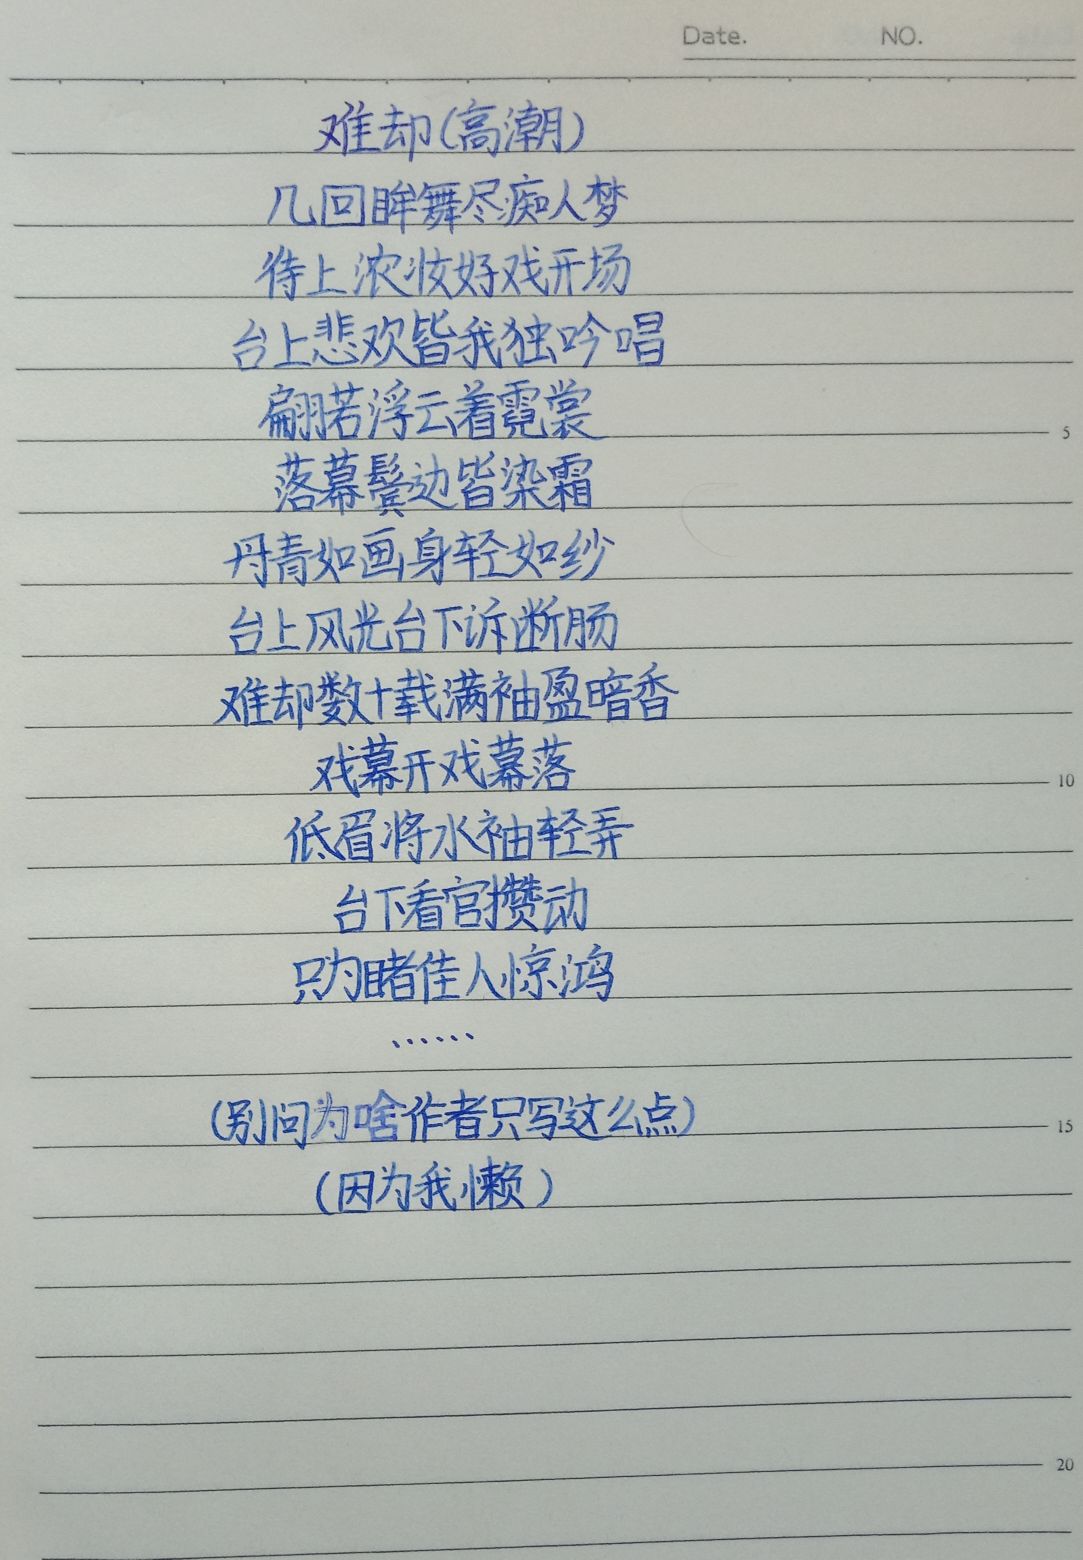 Date. NO.
难却(高潮)
几回眸舞尽痴人梦
待上浓妆好戏开场
台上悲欢皆我独吟唱
翩若浮云着霓裳
落幕鬓边皆染霜
丹青如画身轻如纱
台上风光台下诉断肠
难却数十载满袖盈暗香
戏幕开戏幕落
低眉将水袖轻弄
台下看官攒动
只为睹佳人惊鸿
……
(别问为啥作者只写这么点)
(因为我懒)
5
10
15
20